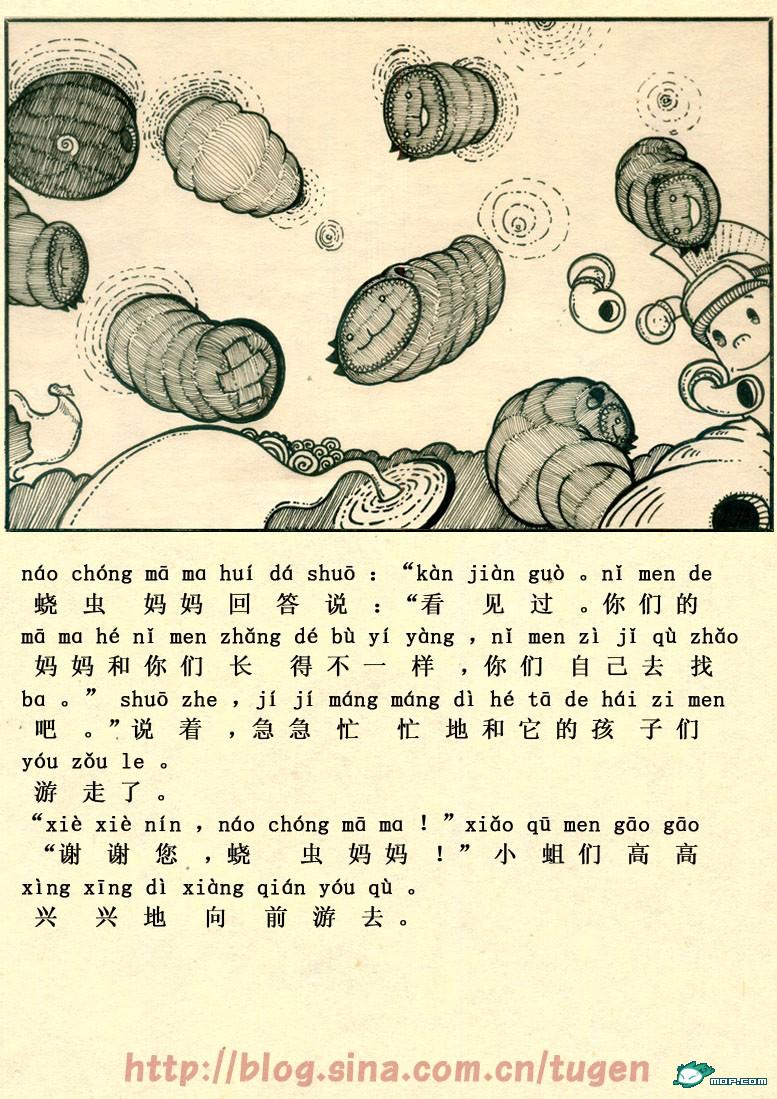 náo chóng mā ma huí dá shuō : “kàn jiàn guò 。nǐ men de
蛲 虫 妈 妈 回 答 说 :“看 见 过 。你 们 的
mā ma hé nǐ men zhǎng dé bù yí yàng ,nǐ men zì jǐ qù zhǎo
妈 妈 和 你 们 长 得 不 一 样 ,你 们 自 己 去 找
ba 。” shuō zhe ,jí jí máng máng dì hé tā de hái zi men
吧 。”说 着 ,急 急 忙 忙 地 和 它 的 孩 子 们
yóu zǒu le 。
游 走 了 。
“xiè xiè nín ,náo chóng mā ma !”xiǎo qū men gāo gāo
“谢 谢 您 ,蛲 虫 妈 妈 !” 小 蛆 们 高 高
xìng xīng dì xiàng qián yóu qù 。
兴 兴 地 向 前 游 去 。
http://blog.sina.com.cn/tugen
MOP.COM